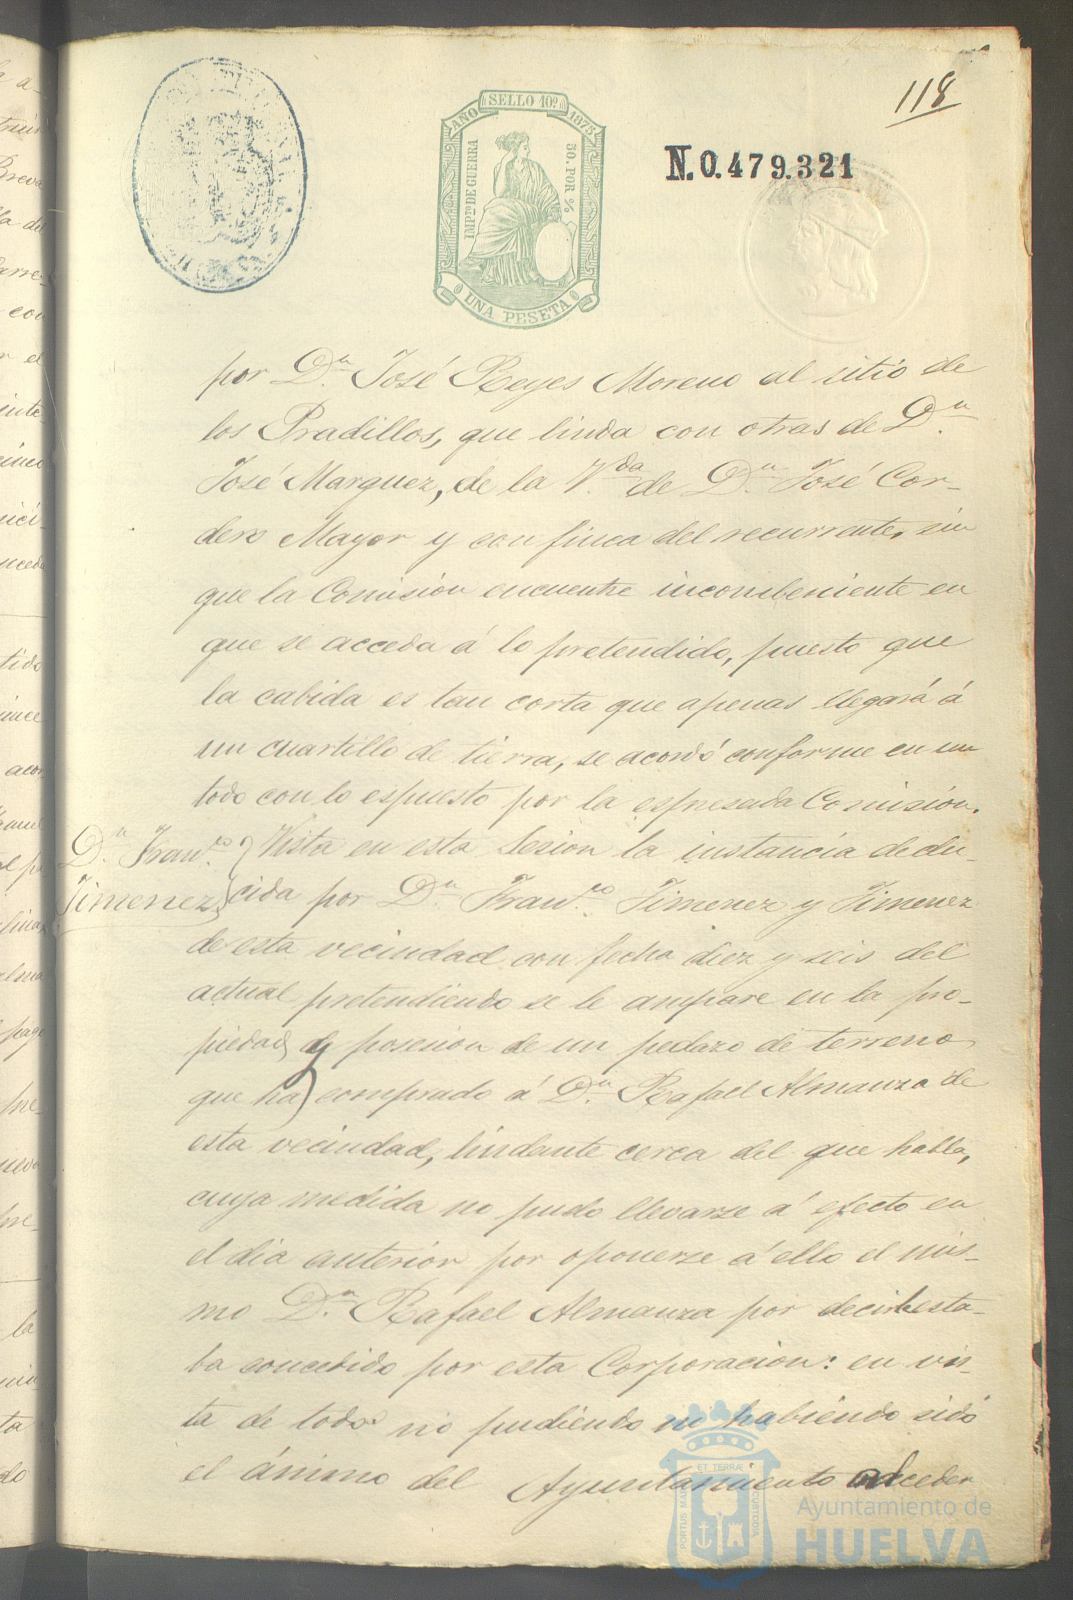 118
AÑO SELLO 10º 1875
IMPTO DE GUERRA
50. POR %
UNA PESETA
N.0.479.321
por D.n José Reyes Moreno al sitio de
los Pradillos, que linda con otras de D.n
José Marquez, de la V.da de D.n José Cor-
dero Mayor y con finca del recurrente, sin
que la Comision encuentre incombeniente en
que se acceda á lo pretendido, puesto que
la cabida es tan corta que apenas llegará á
un cuartillo de tierra, se acordó conforme en un
todo con lo espuesto por la espresada Comision.
D.n Fran.co
Jimenez
Vista en esta Sesion la instancia dedu-
cida por D.n Fran.co Jimenez y Jimenez
de esta vecindad con fecha diez y seis del
actual pretendiendo se le ampare en la pro-
piedad y posesion de un pedazo de terreno
que ha comprado á D.n Rafael Almanza de
esta vecindad, lindante cerca del que habla,
cuya medida no pudo llevarse á efecto en
el dia anterior por oponerse á ello el mis-
mo D.n Rafael Almanza por decir esta-
ba concedido por esta Corporacion: en vis-
ta de todo no pudiendo no habiendo sido
el ánimo del Ayuntamiento acceder
PORTUS MARIS ET TERRAE CUSTODIA
Ayuntamiento de
HUELVA